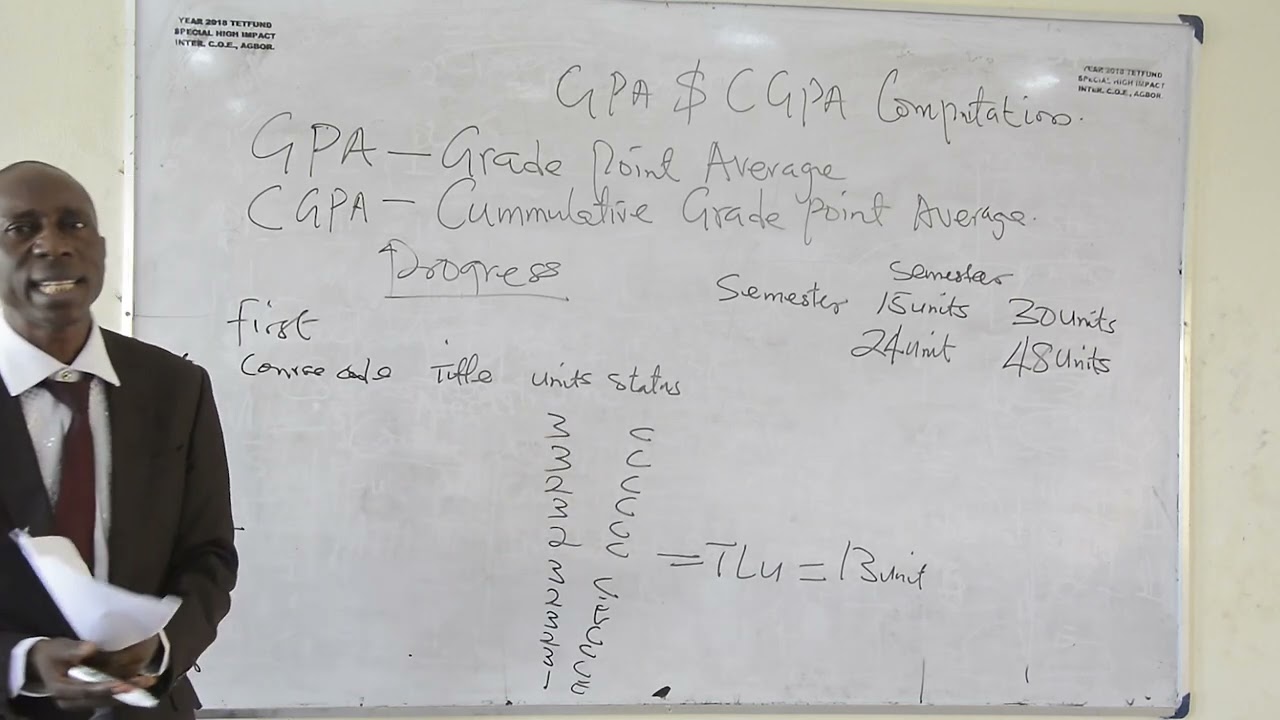 YEAR 2018 TETFUND
SPECIAL HIGH IMPACT
INTER. C.O.E., AGBOR.
YEAR 2018 TETFUND
SPECIAL HIGH IMPACT
INTER. C.O.E., AGBOR.
GPA $ CGPA Computation.
GPA – Grade Point Average
CGPA – Cummulative Grade Point Average.
Progress
Semester
Semester 15units 30units
24unit 48units
first
Course code Title units status
3 C
3 C
2 C
3 C
2 C
= TLU = 13unit